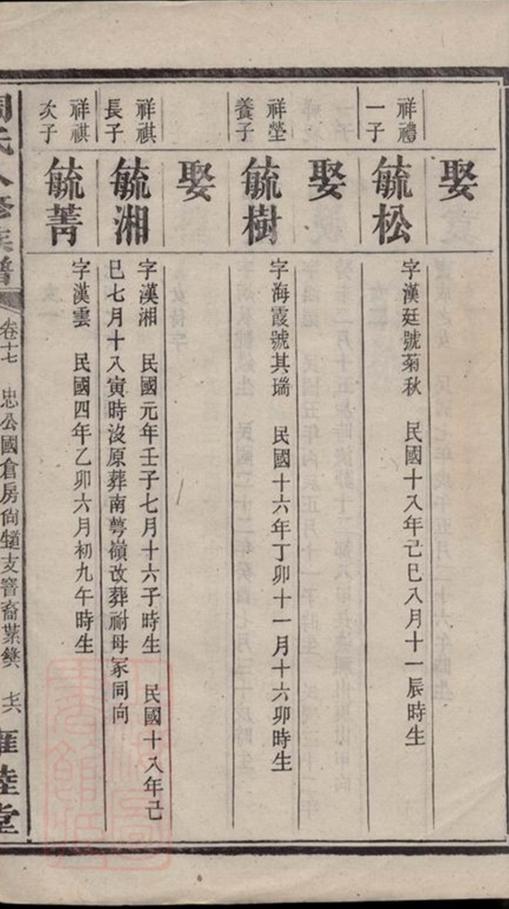 娶
祥禮
一子
毓松
字漢廷號菊秋　民國十八年己巳八月十一辰時生
娶
祥瑩
養子
毓樹
字海霞號其瑞　民國十六年丁卯十一月十六卯時生
娶
祥祺
長子
毓湘
字漢湘　民國元年壬子七月十六子時生　民國十八年己
巳七月十八寅時沒原葬南萼嶺改葬祔母冢同向
祥祺
次子
毓菁
字漢雲　民國四年乙卯六月初九午時生
周氏八修族譜
卷十七　忠公國倉房尙支裔葉　十六
雍睦堂